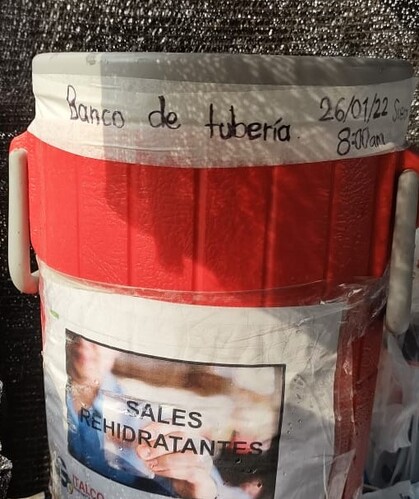 Banco de tubería. 26/01/22
8:00am
SALES
REHIDRATANTES
ITALCO